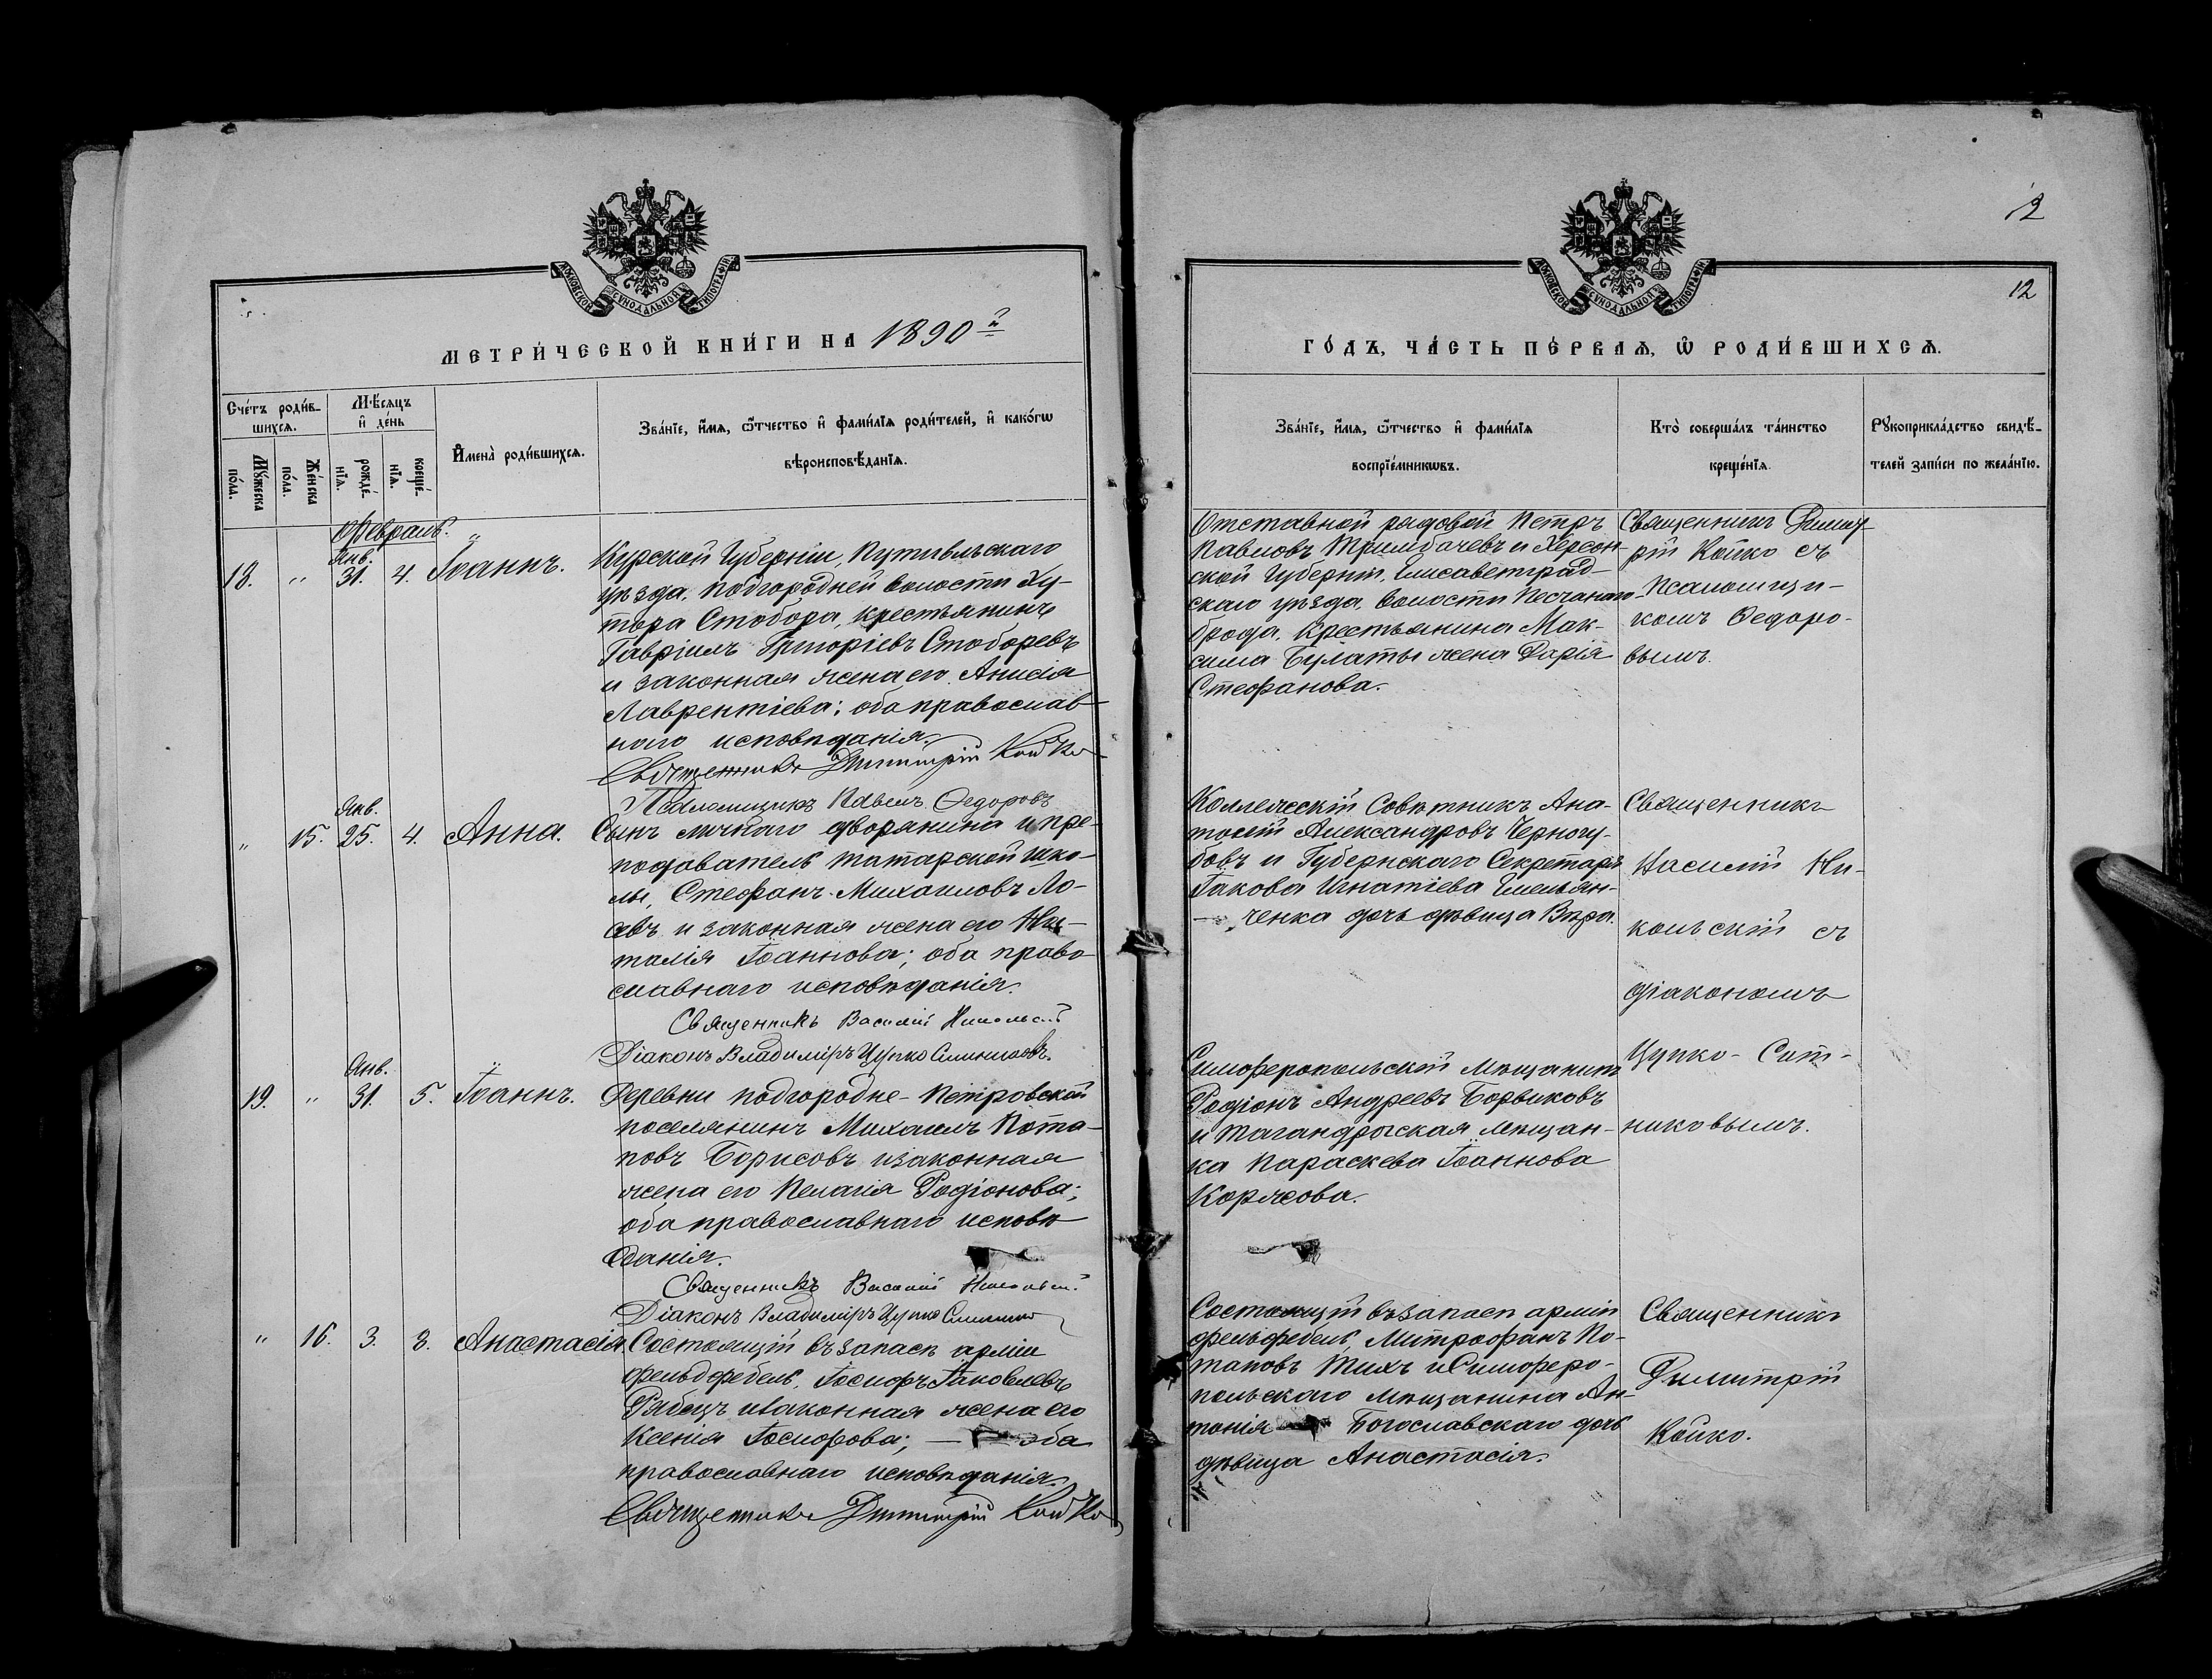 12
МОСКОВСКОЙ СУНОДАЛЬНОЙ ТИПОГРАФІИ
МОСКОВСКОЙ СУНОДАЛЬНОЙ ТИПОГРАФІИ
12
МЕТРИ́ЧЕСКОЙ КНИ́ГИ НА 1890й
ГО́ДЪ, ЧА́СТЬ ПЕ́РВАѦ, Ѡ҆ РОДИ́ВШИХСѦ.
Сче́тъ роди́вшихсѧ.
Мꙋ́жеска по́ла.
Же́нска по́ла.
Мѣ́сѧцъ и҆ де́нь
рожде́нїѧ.
креще́нїѧ.
И҆мена̀ роди́вшихсѧ.
Зва́нїе, и҆́мѧ, ѻ҆́тчество и҆ фами́лїѧ роди́телей, и҆ како́гѡ
вѣроисповѣ́данїѧ.
Зва́нїе, и҆́мѧ, ѻ҆́тчество и҆ фами́лїѧ
воспрїе́мникѡвъ.
Кто̀ соверша́лъ та́инство
креще́нїѧ.
Рꙋкоприкла́дство свидѣ́-
телей за́писи по жела́нїю.
Февраль.
Янв.
18. " 31. 4. Іоаннъ.
Курской Губерніи, Путивльскаго
уѣзда, подгородней волости Ху-
тора Стобора, крестьянинъ
Гавріилъ Григоріевъ Стоборевъ
и законная жена его Анисія
Лаврентіева; оба православ-
наго исповѣданія.
Священникъ Димитрій Койко
Псаломщикъ Павелъ Федоровъ
Отставной рядовой Петръ
Павловъ и Херсон-
ской Губерніи, Елисаветград-
скаго уѣзда, волости Песчанаго
брода, крестьянина Мак-
сима Булаты жена Дарія
Стефанова.
Священникъ Димит-
рій Койко съ
Псаломщи-
комъ Федоро-
вымъ.
Янв.
" 15. 25. 4. Анна.
Сынъ личнаго дворянина и пре-
подаватель татарской шко-
лы, Стефанъ Михаиловъ Ло-
евъ и законная жена его На-
талія Іоаннова; оба право-
славнаго исповѣданія.
Священникъ Василій Никольскій
Діаконъ Владиміръ Цупко
Коллежскій Совѣтникъ Ана-
толій Александровъ Черногу-
бовъ и Губернскаго Секретаря
Іакова Игнатіева Емельян-
ченка дочь дѣвица Вѣра.
Священникъ
Василій Ни-
кольскій съ
діакономъ
Цупко-Сит-
никовымъ.
Янв.
19. " 31. 5. Іоаннъ.
Деревни подгородне-Петровской
поселянинъ Михаилъ Пота-
повъ Борисовъ и законная
жена его Пелагія Родіонова;
оба православнаго исповѣ
данія.
Священникъ Василій Никольскій
Діаконъ Владиміръ Цупко
Симферопольскій мѣщанинъ
Родіонъ Андреевъ Боровиковъ
и Таганрогская мѣщан-
ка Параскева Іоаннова
Коржова.
" 16. 3. 3. Анастасія
Состоящій въ запасѣ арміи
фельдфебель, Іосифъ Іаковлевъ
Рябецъ и законная жена его
Ксенія Іосифова; — оба
православнаго исповѣданія.
Священникъ Димитрій Койко
Состоящій въ запасѣ арміи
фельдфебель, Митрофанъ По-
таповъ Тихъ и Симферо-
польскаго мѣщанина Ан-
тонія Богославскаго дочь
дѣвица Анастасія.
Священникъ
Димитрій
Койко.